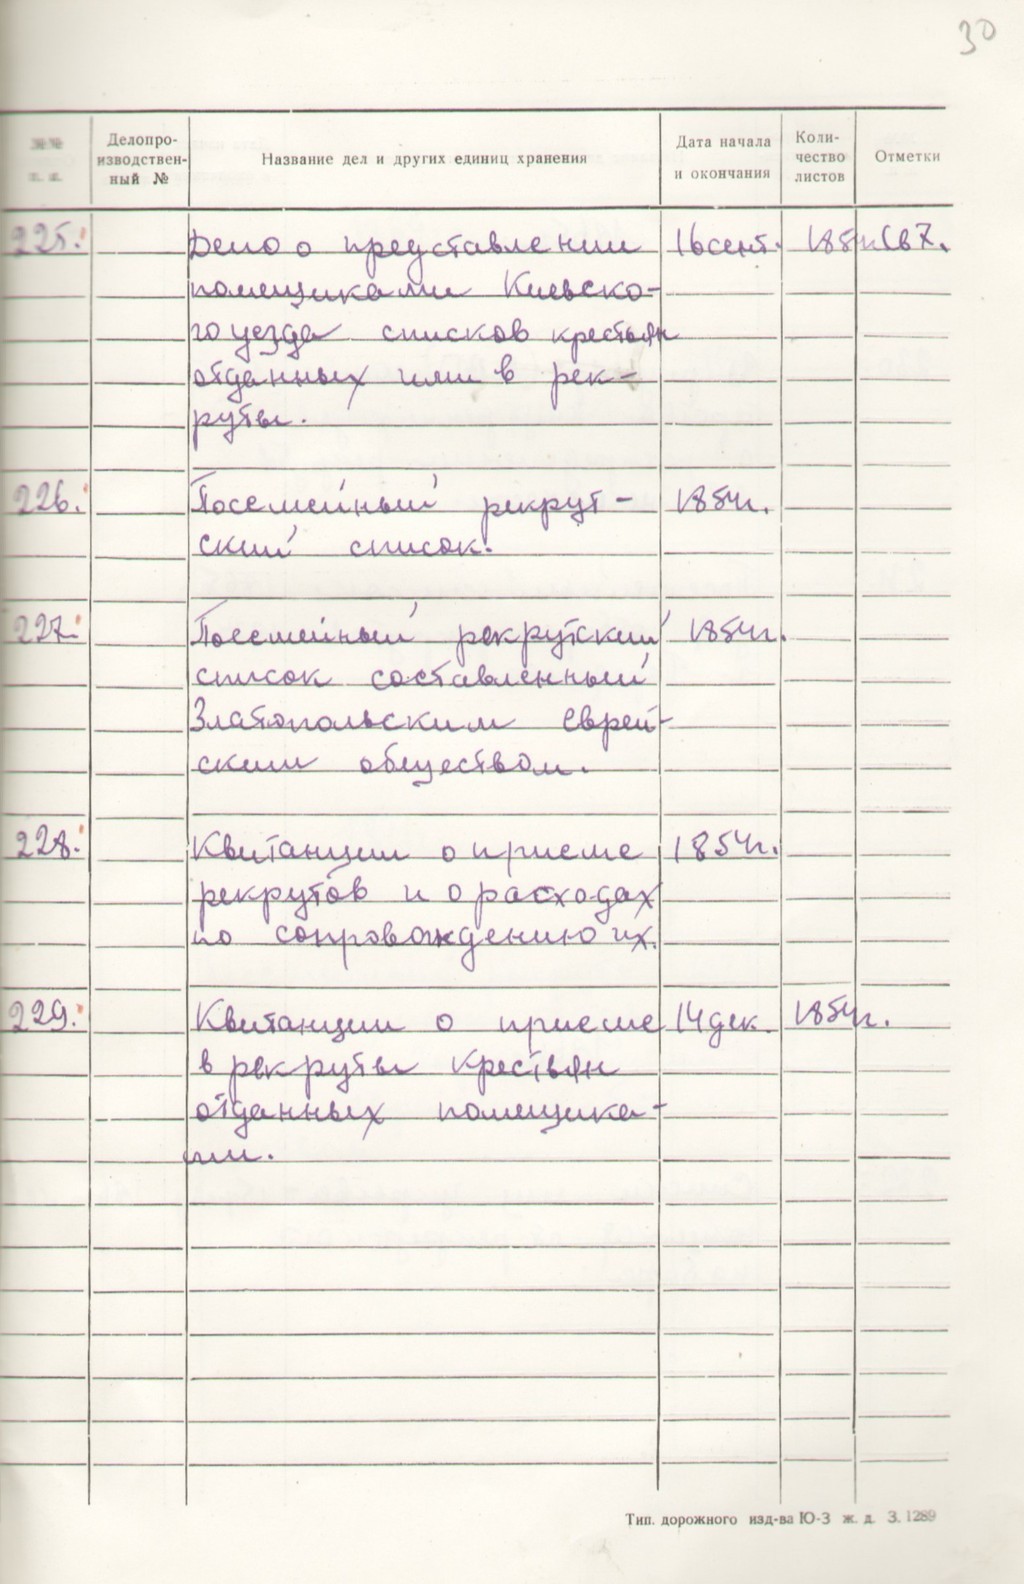 30
№№ п. п.
Делопро-
изводствен-
ный №
Название дел и других единиц хранения
Дата начала
и окончания
Коли-
чество
листов
Отметки
225. Дело о представлении 16 сент. 1854г.
помещиками Киевско-
го уезда списков крестьян
отданных ими в рек-
руты.
226. Посемейный рекрут- 1854г.
ский список.
227. Посемейный рекрутский 1854г.
список составленный
Златопольским еврей-
ским обществом.
228. Квитанции о приеме 1854г.
рекрутов и о расходах
по сопровождению их.
229. Квитанции о приеме 14 дек. 1854г.
в рекруты крестьян
отданных помещика-
ми.
Тип. дорожного изд-ва Ю-З ж. д. З. 1289